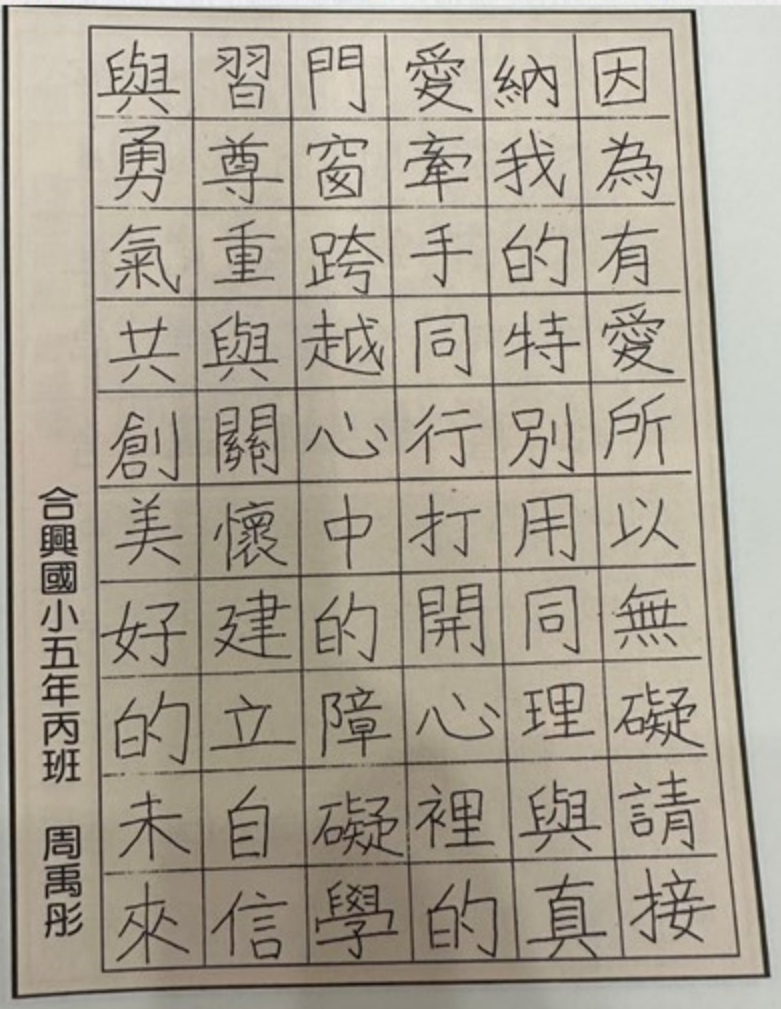 因為有愛所以無礙請接
納我的特別用同理與真
愛牽手同行打開心裡的
門窗跨越心中的障礙學
習尊重與關懷建立自信
與勇氣共創美好的未來
合興國小五年丙班 周禹彤